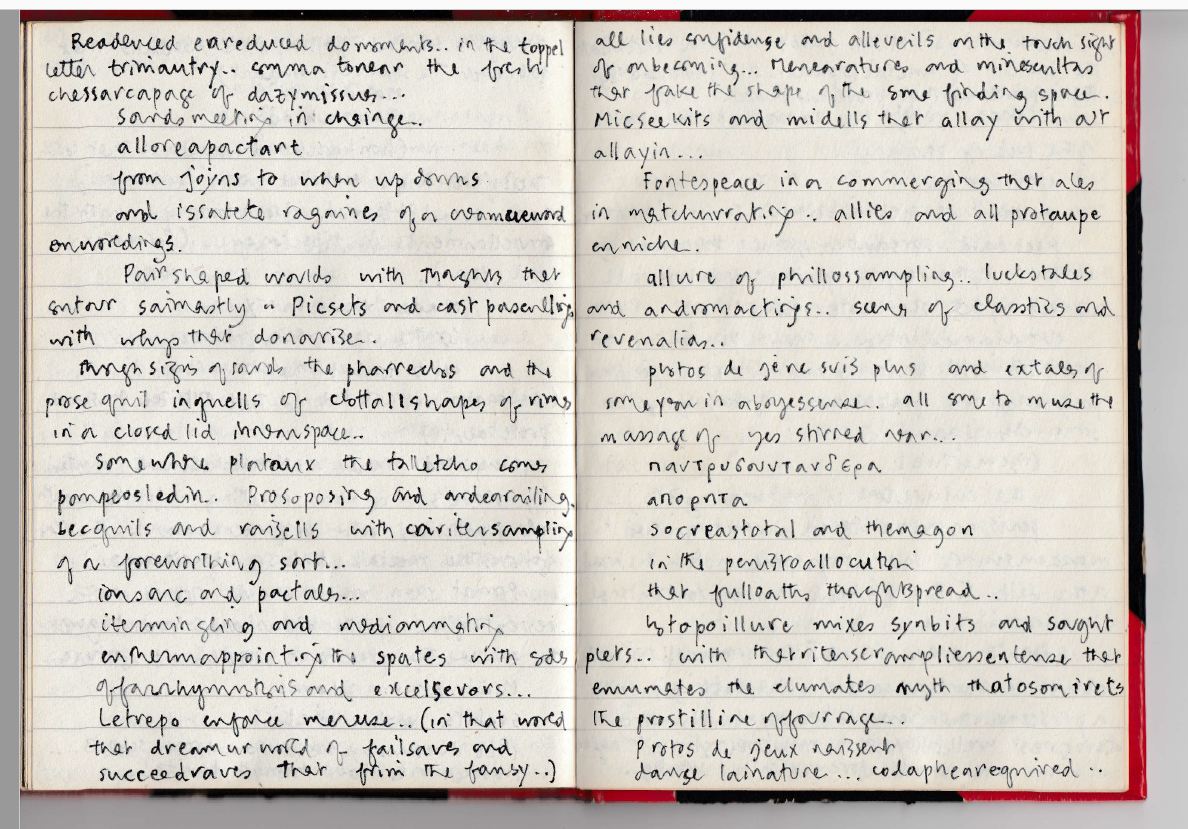 Readenced enreduced domoments.. in the toppel
letter trimantry.. comma tonear the fresh
chessarcapage of dazymissues...
Sands meeting in chainge..
alloreapactant
from joins to when up downs
and issatete ragaines of a
onwordings.
Pair shaped worlds with thoghts that
ontour saimastly.. Picsets and cast pascellings
with whys that donarise..
though signs of sands the pharrechos and the
prose quil inquells of clottallshapes of rimes
in a closed lid innearspace..
Somewhere plateaux the talletcho comes
pompeosledin.. Prosoposing and andearailing.
becquils and raisells with cariter sampling
of a foreworthing sort...
ionsarc and pactales...
itermingling and
the spates with
and excelsevors...
Letrepo enforce menuse.. (in that world
that dreamurworld of failsaves and
succeedraves that from the fansy..)
all lies confidense and alleveils on the touch sight
of onbecoming... Menearatures and minescultas
that fake the shape of the some finding space.
Micseekits and midells that allay with out
allayin...
Fontespeace in a commerging that ales
in matchurratings.. allies and all protaupe
enniche..
allure of phillossampling.. luckstales
and andromactings.. scenes of classtics and
revenalias..
photos de gène suis plus and extales of
some year in abonyessense.. all some to muse the
massage of yes stirred near...
παντρυσουντανδερα
απορητα
socreastotal and themagon
in the penistoallocution
that fulloaths thoughtspread..
Istopoillure mixes synbits and sought
plets.. with thatritenscrampliessentense that
enumates the elumates myth thatosomirets
the prostilline offourrage...
Protos de jeux naissent
danse lainature... codaphearequired..